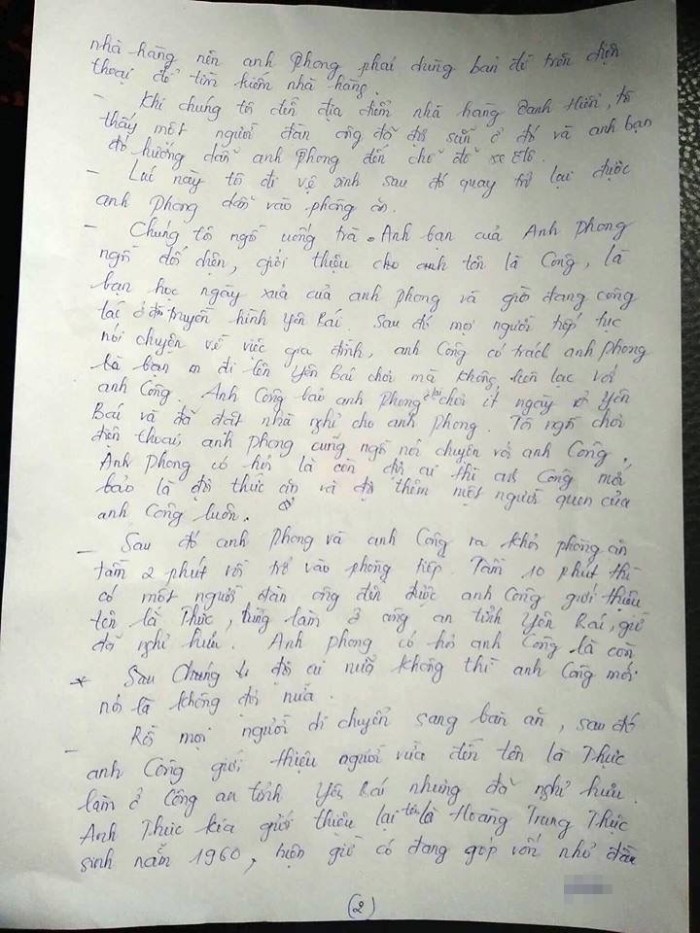 nhà hàng nên anh Phong phải dùng bản đồ trên điện
thoại để tìm kiếm nhà hàng.
- Khi chúng tôi đến địa điểm nhà hàng Danh Hiền, tôi
thấy một người đàn ông đã đợi sẵn ở đó và anh bạn
đó hướng dẫn anh Phong đến chỗ để xe ôtô.
- Lúc này tôi đi vệ sinh sau đó quay trở lại được
anh Phong dẫn vào phòng ăn.
- Chúng tôi ngồi uống trà. Anh bạn của Anh Phong
ngồi đối diện, giới thiệu cho anh tên là Công, là
bạn học ngày xưa của anh Phong và giờ đang công
tác ở đài truyền hình Yên Bái. Sau đó mọi người tiếp tục
nói chuyện về việc gia đình, anh Công có trách anh Phong
là bạn đi lên Yên Bái chơi mà không liên lạc với
anh Công. Anh Công bảo anh Phong chơi ít ngày ở Yên
Bái và đã đặt nhà nghỉ cho anh Phong. Tôi ngồi chơi
điện thoại, anh Phong cũng ngồi nói chuyện với anh Công.
Anh Phong có hỏi là còn đợi ai thì anh Công mới
bảo là đợi thức ăn và đợi thêm một người quen của
anh Công luôn.
- Sau đó anh Phong và anh Công ra khỏi phòng ăn
tầm 2 phút rồi trở vào phòng tiếp. Tầm 10 phút thì
có một người đàn ông đến được anh Công giới thiệu
tên là Thức, từng làm ở công an tỉnh Yên Bái, giờ
đã nghỉ hưu. Anh Phong có hỏi anh Công là còn
* Sau Chúng đợi ai nữa không thì anh Công mới
nói là không đợi nữa.
- Rồi mọi người di chuyển sang bàn ăn, sau đó
anh Công giới thiệu người vừa đến tên là Thức
làm ở Công an tỉnh Yên Bái nhưng đã nghỉ hưu.
Anh Thức kia giới thiệu lại tên là Hoàng Trung Thực
sinh năm 1960, hiện giờ có đang góp vốn nhỏ đầu
(2)